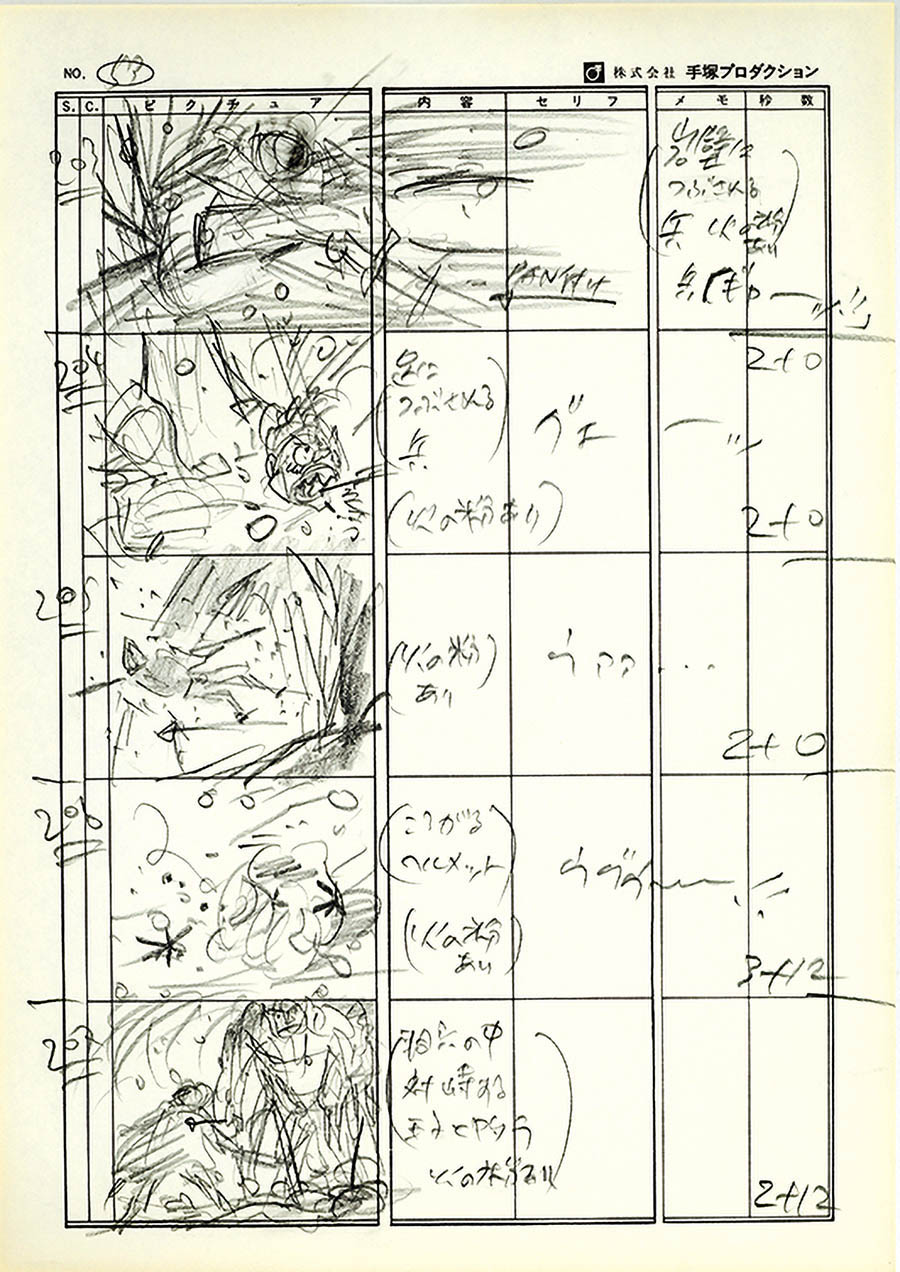 NO. 53
株式会社 手塚プロダクション
S. C. ピクチュア 内容 セリフ メモ 秒数
203
つぶされる
兵 火の粉
あり
PAN付け
204
足に
つぶされる
兵
(火の粉あり)
グエーッ
2+0
2+0
205
(火の粉
あり)
ウアア...
2+0
206
(ころがる
ヘルメット)
(火の粉
あり)
3+12
207
の中
対峙する
火の粉あり
2+12